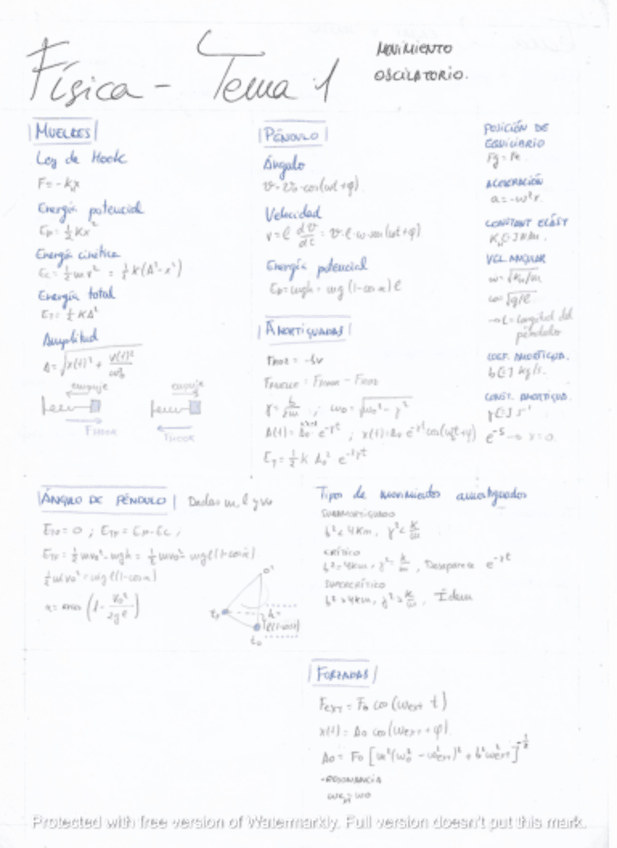 Física - Tema 1
MOVIMIENTO
OSCILATORIO.
MUELLES
Ley de Hook
F = -kx
Energía potencial
Ep = ½ Kx²
Energía cinética
Ec = ½ mv² = ½ K(A² - x²)
Energía total
ET = ½ KA²
Amplitud
A = √(x(t)² + v(t)²/ω0²)
empuje
FHOOK
empuje
FHOOK
PÉNDULO
Ángulo
Velocidad
Energía potencial
Ep = mgh = mg (1-cos α) l
AMORTIGUADAS
γ = b/2m ; ω0 = √(ω0² - γ²)
ET = ½ k A0² e^-2γt
POSICIÓN DE
EQUILIBRIO
Fg = Fe
ACELERACIÓN
a = -ω²x
CONSTANT ELÁST
VEL ANGULAR
ω = √(K/m)
ω = √(g/l)
→ L = Longitud del
péndulo
COEF. AMORTIGUA.
b [=] kg/s.
CONST. AMORTIGUA.
γ [=] s⁻¹
e⁻⁵ → x = 0
ÁNGULO DE PÉNDULO Dadas m, l y v0
½ mv0² = mgl(1-cos α)
Tipos de movimientos amortiguados
SUBAMORTIGUADO
b² < 4Km, γ² < K/m
CRÍTICO
b² = 4Km, γ² = K/m, Desaparece e^-γt
SUPERCRÍTICO
b² > 4Km, γ² > K/m, Ídem
FORZADAS
FEXT = F0 cos (ωext t)
x(t) = A0 cos (ωext + φ)
A0 = F0 [m²(ω0² - ωext²)² + b²ωext²]^-½
-RESONANCIA
ωext = ω0
Protected with free version of Watermarkly. Full version doesn't put this mark.